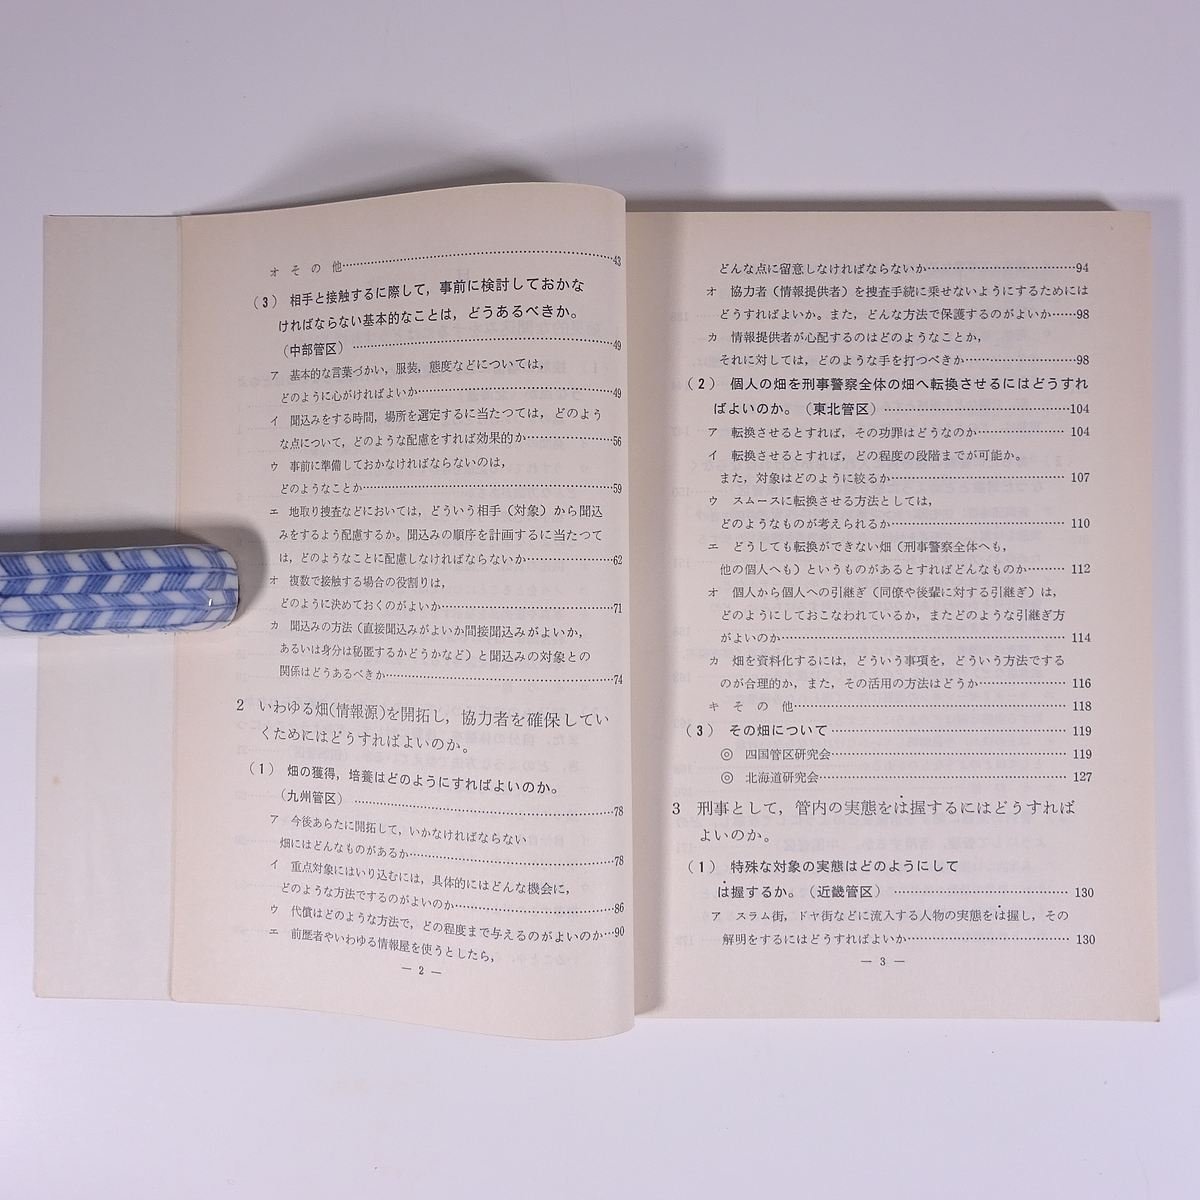 オ そ の 他……………43
(3) 相手と接触するに際して,事前に検討しておかな
ければならない基本的なことは,どうあるべきか。
(中部管区)……………49
ア 基本的な言葉づかい,服装,態度などについては,
どのように心がければよいか……………49
イ 聞込みをする時間,場所を選定するに当たつては,どのよう
な点について,どのような配慮をすれば効果的か……………56
ウ 事前に準備しておかなければならないのは,
どのようなことか……………59
エ 地取り捜査などにおいては,どういう相手(対象)から聞込
みをするよう配慮するか。聞込みの順序を計画するに当たつて
は,どのようなことに配慮しなければならないか……………62
オ 複数で接触する場合の役割りは,
どのように決めておくのがよいか……………71
カ 聞込みの方法(直接聞込みがよいか間接聞込みがよいか,
あるいは身分は秘匿するかどうかなど)と聞込みの対象との
関係はどうあるべきか……………74
2 いわゆる畑(情報源)を開拓し,協力者を確保してい
くためにはどうすればよいのか。
(1) 畑の獲得,培養はどのようにすればよいのか。
(九州管区)……………78
ア 今後あらたに開拓して,いかなければならない
畑にはどんなものがあるか……………78
イ 重点対象にはいり込むには,具体的にはどんな機会に,
どのような方法でするのがよいのか……………86
ウ 代償はどのような方法で,どの程度まで与えるのがよいのか…90
エ 前歴者やいわゆる情報屋を使うとしたら,
― 2 ―
どんな点に留意しなければならないか……………94
オ 協力者(情報提供者)を捜査手続に乗せないようにするためには
どうすればよいか。また,どんな方法で保護するのがよいか……98
カ 情報提供者が心配するのはどのようなことか,
それに対しては,どのような手を打つべきか……………98
(2) 個人の畑を刑事警察全体の畑へ転換させるにはどうすれ
ばよいのか。(東北管区)……………104
ア 転換させるとすれば,その功罪はどうなのか……………104
イ 転換させるとすれば,どの程度の段階までが可能か。
また,対象はどのように絞るか……………107
ウ スムースに転換させる方法としては,
どのようなものが考えられるか……………110
エ どうしても転換ができない畑(刑事警察全体へも,
他の個人へも)というものがあるとすればどんなものか………112
オ 個人から個人への引継ぎ(同僚や後輩に対する引継ぎ)は,
どのようにしておこなわれているか,またどのような引継ぎ方
がよいのか……………114
カ 畑を資料化するには,どういう事項を,どういう方法でする
のが合理的か,また,その活用の方法はどうか……………116
キ そ の 他……………118
(3) その畑について……………119
◎ 四国管区研究会……………119
◎ 北海道研究会……………127
3 刑事として,管内の実態をは握するにはどうすれば
よいのか。
(1) 特殊な対象の実態はどのようにして
は握するか。(近畿管区)……………130
ア スラム街,ドヤ街などに流入する人物の実態をは握し,その
解明をするにはどうすればよいか……………130
― 3 ―